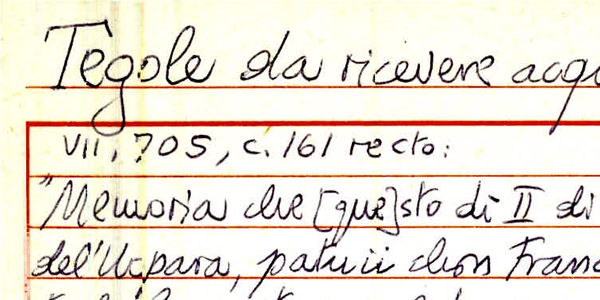 Tegole da ricevere acqu
VII. 705, c. 161 recto:
"Memoria che [que]sto dì II di
dell'Uopara, patuii chon Franc